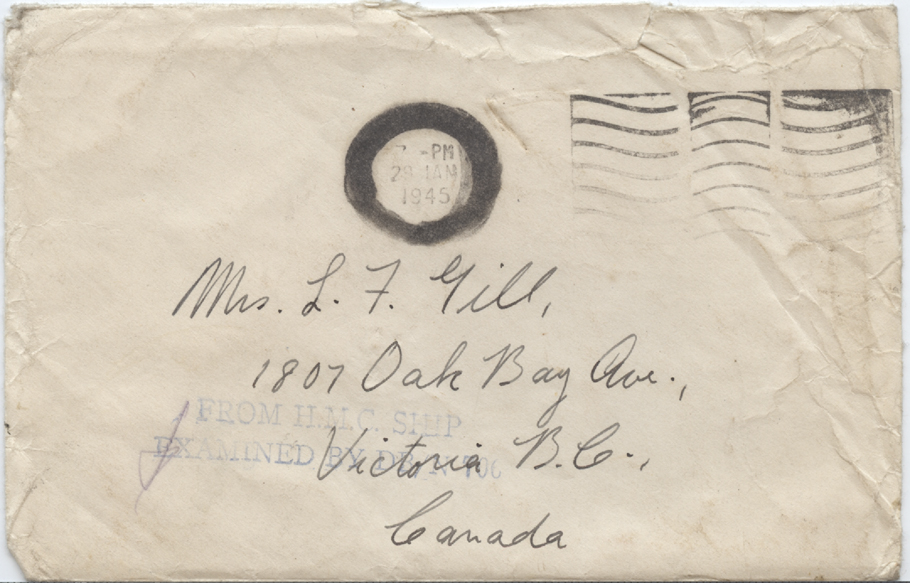 -PM
29 JAN
1945
Mrs. L. F. Gill,
1807 Oak Bay Ave.,
FROM H.M.C. SHIP
EXAMINED BY DB/N
Victoria B.C.,
Canada